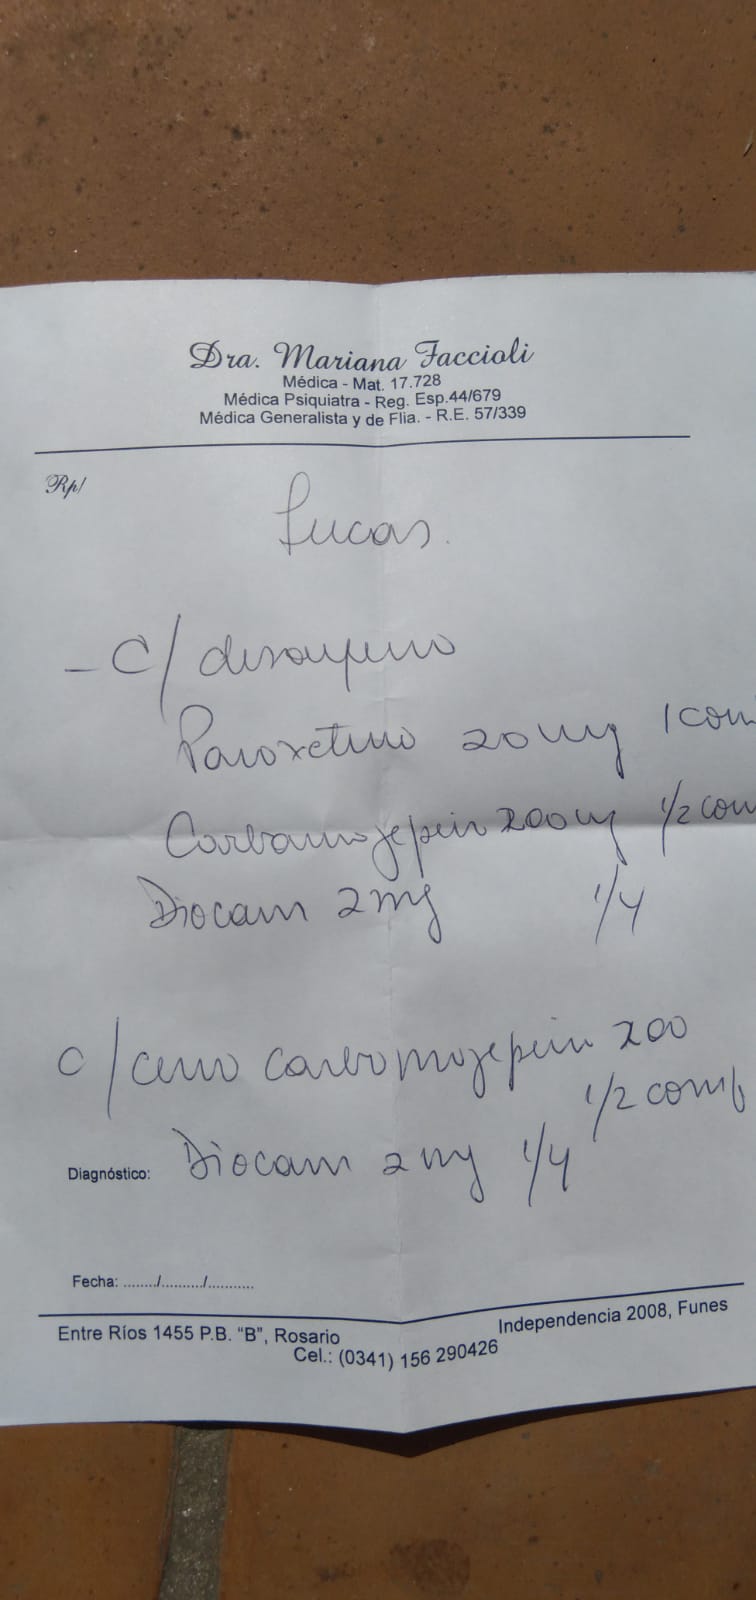 Dra. Mariana Faccioli
Médica - Mat. 17.728
Médica Psiquiatra - Reg. Esp.44/679
Médica Generalista y de Flia. - R.E. 57/339
Rp/
Lucas.
- C/ desayuno
Paroxetina 20 mg 1 com
Carbamazepin 200 mg 1/2 com
Diocam 2 mg 1/4
C/ cena carbamazepin 200
1/2 comp
Diagnóstico: Diocam 2 mg 1/4
Fecha: ......../........./...........
Entre Ríos 1455 P.B. "B", Rosario
Independencia 2008, Funes
Cel.: (0341) 156 290426